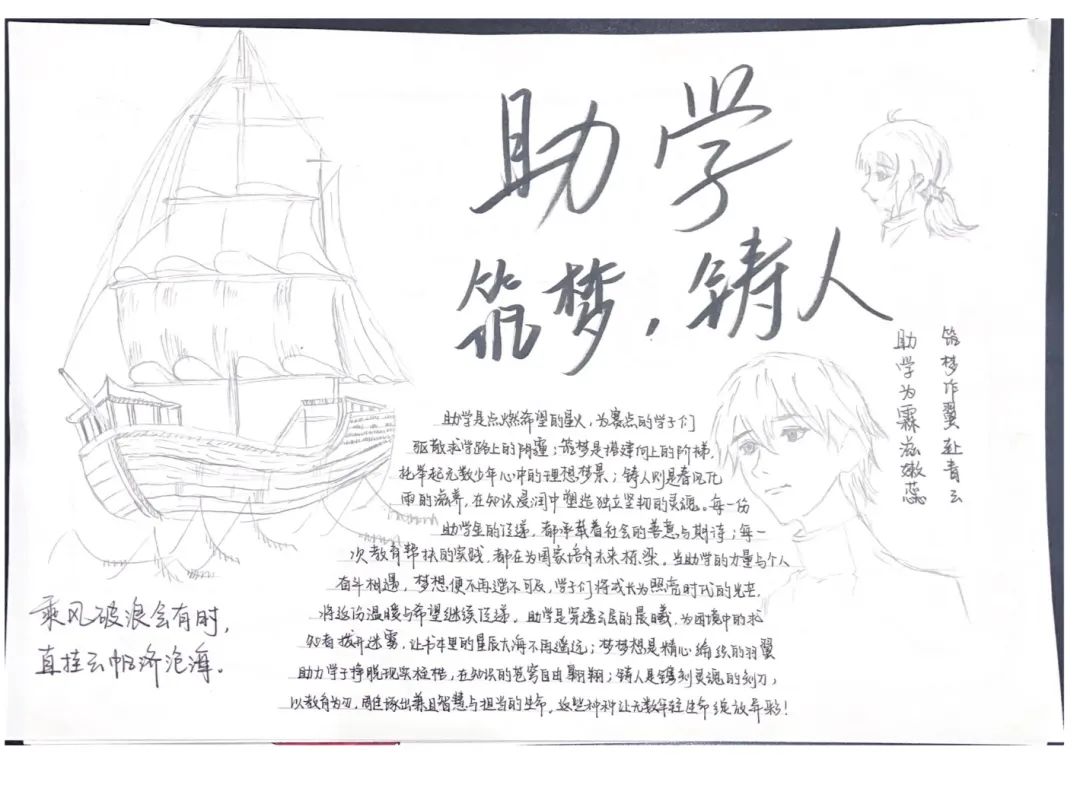 助学
筑梦，铸人
筑梦作翼赴青云
助学为霖滋嫩蕊
助学是点燃希望的星火，为寒点的学子们
驱散求学路上的阴霾；筑梦是搭建向上的阶梯，
托举起无数少年心中的理想梦景；铸人则是春风化
雨的滋养，在知识浸润中塑造独立坚韧的灵魂。每一份
助学金的传递，都承载着社会的善意与期许；每一
次教育帮扶的实践，都在为国家培育未来栋梁。当助学的力量与个人
奋斗相遇，梦想便不再遥不可及，学子们将成长为照亮时代的光芒，
将这份温暖与希望继续传递。助学是穿透云层的晨曦，为困境中的求
知者拨开迷雾，让书本里的星辰大海不再遥远；梦梦想是精心编织的羽翼
助力学子挣脱现实桎梏，在知识的苍穹自由翱翔；铸人是镌刻灵魂的刻刀，
以教育为刃，雕琢出兼具智慧与担当的生命。这些种种让无数年轻生命绽放异彩！
乘风破浪会有时，
直挂云帆济沧海。